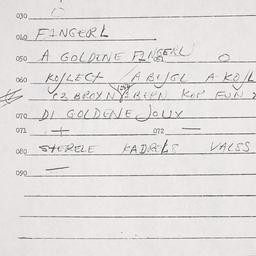 030 O
040 FINGERL
A GOLDENE FINGERL
050 O
060 KOYLECT / A BEYGL A KOYL
EZ BROYN IBERN KOP FUN
070 DI GOLDENE JOUX
071 + 072 —
080 STERELE KADRELS VALSS
090 —